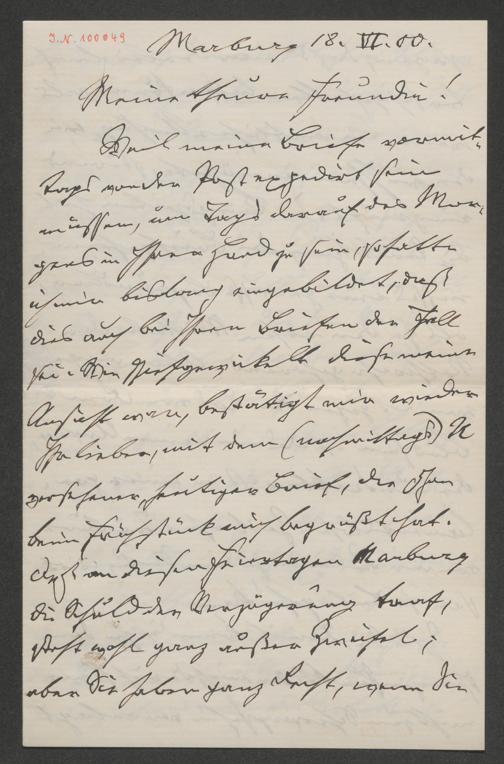 J. N. 100049
Marburg 18. VI. 00.
Meine theure Freundin!
Weil meine Briefe vormit-
tags von der Post expedirt sein
müssen, um Tags darauf des Mor-
gens in Ihrer Hand zu sein, so hatte
ich mir bislang eingebildet, daß
dies auch bei Ihren Briefen der Fall
sei. Wie diese meine
Ansicht war, bestätigt mir wieder
Ihr lieber, mit dem (nachmittags) N
versehener, heutiger Brief, der schon
beim Frühstück mich begrüßt hat.
Daß an diesen Feiertagen Marburg
die Schuld der Verzögerung traf,
steht wohl ganz außer Zweifel;
aber Sie haben ganz Recht, wenn Sie